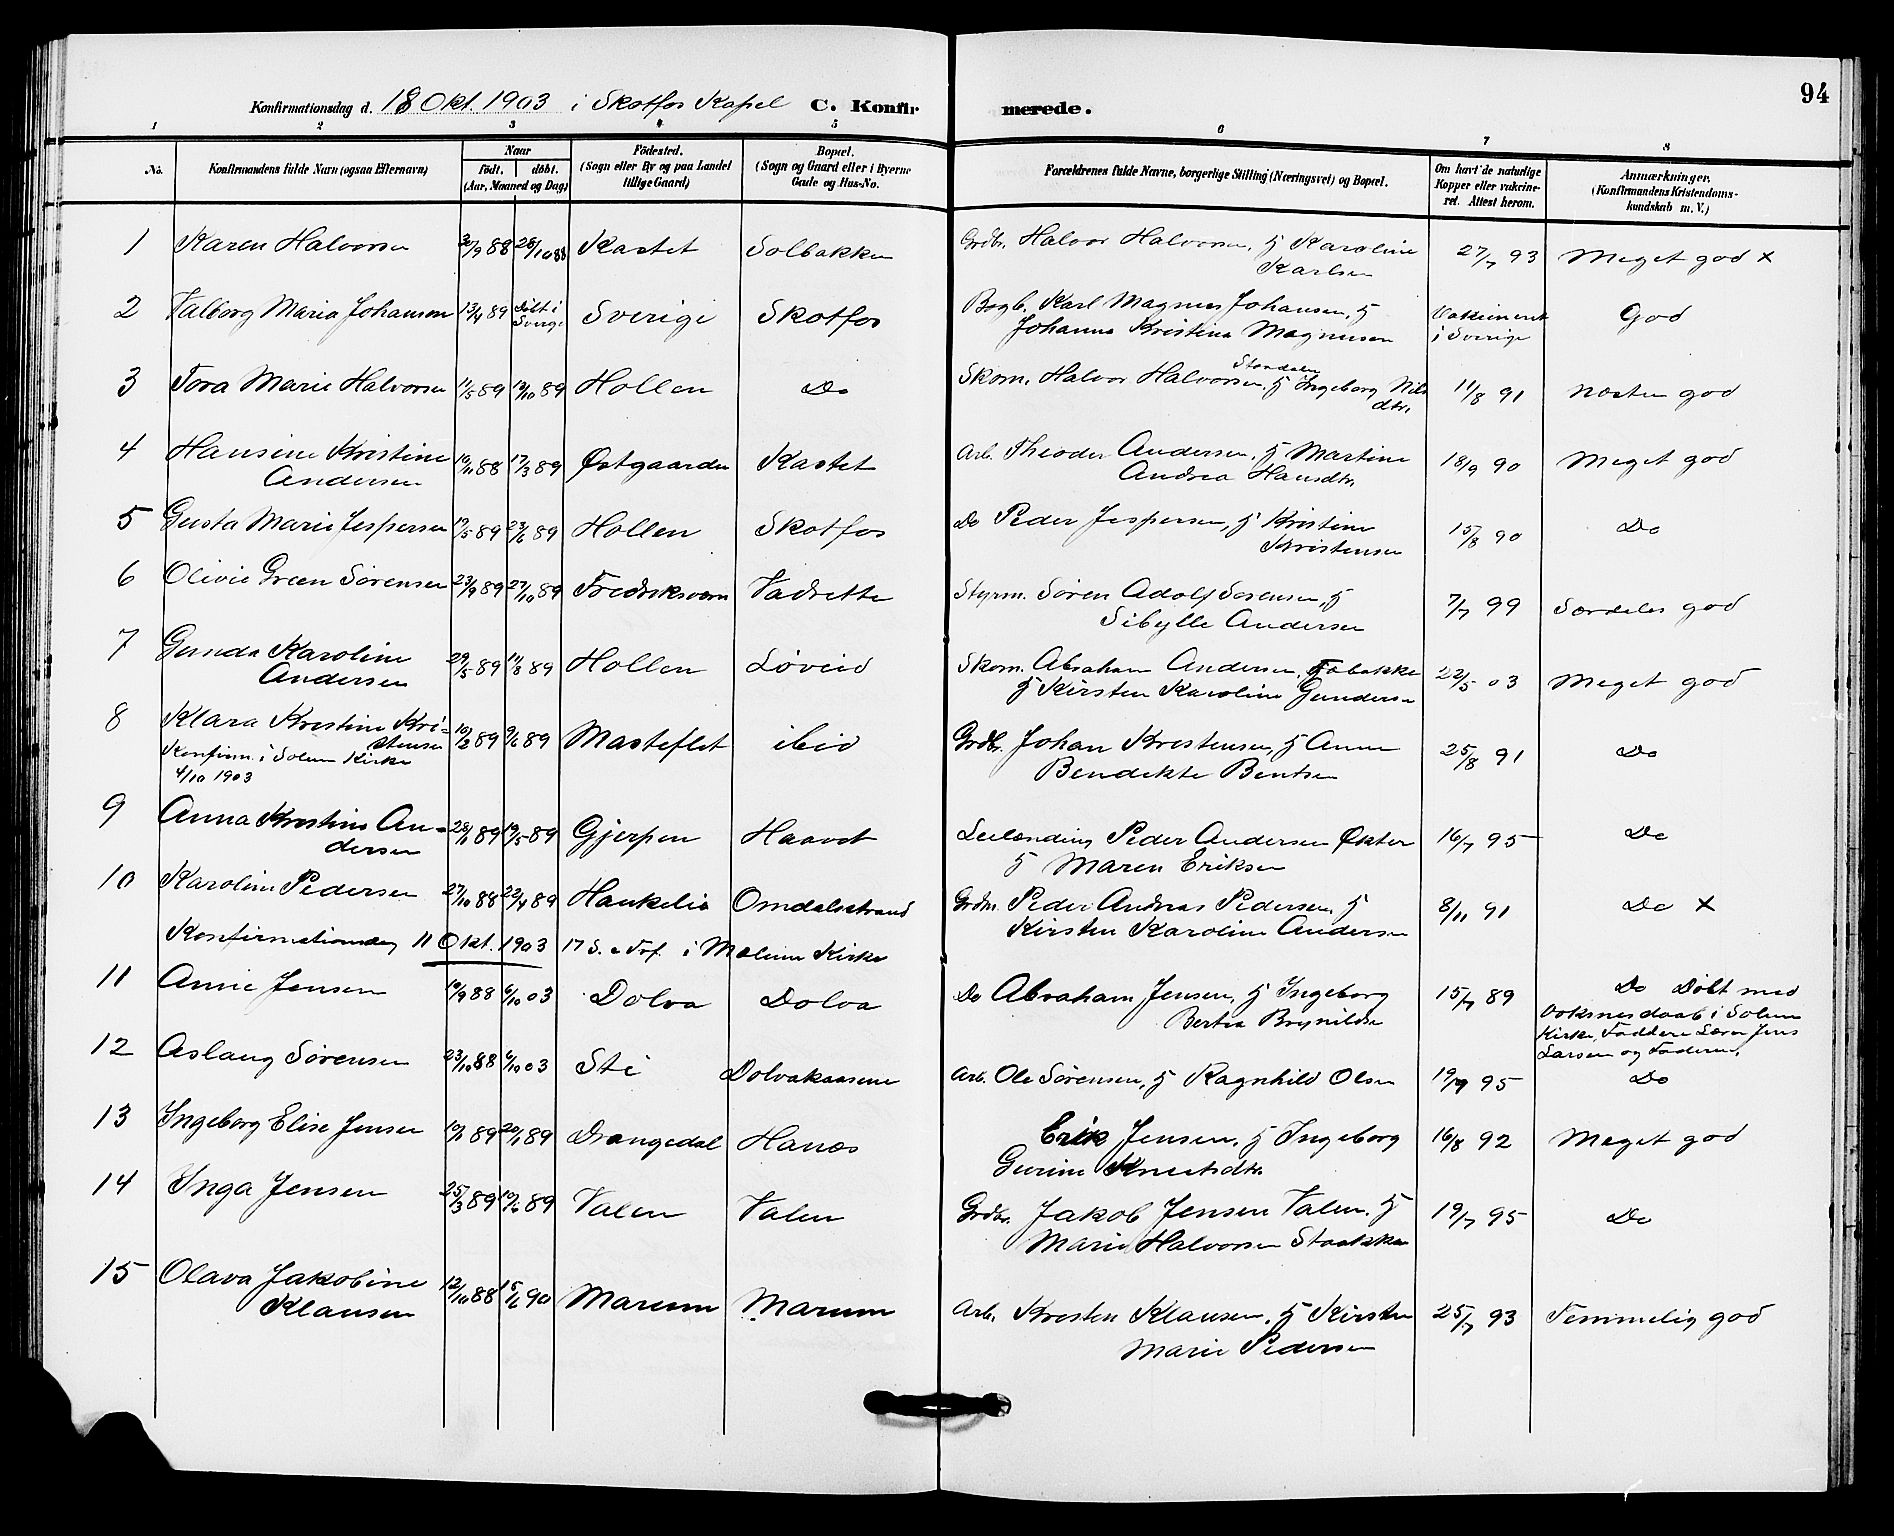 94
Konfirmationsdag d. 18 Okt. 1903 i Skotfos Kapel C. Konfirmerede.
1 2 3 4 5 6 7 8
No. Konfirmandens fulde Navn (ogsaa Efternavn) Naar födt, döbt. (Aar, Maaned og Dag) Födested. (Sogn eller By og paa Landet tillige Gaard) Bopæl. (Sogn og Gaard eller i Byerne Gade og Hus-No. Forældrenes fulde Navne, borgerlige Stilling (Næringsvei) og Bopæl. Om havt de naturlige Kopper eller vakcineret. Attest herom. Anmærkninger. (Konfirmandens Kristendomskundskab m. V.)
1 Karen Halvorsen 30/9 88 28/10 88 Kastet Solbakken Grdbr. Halvor Halvorsen, Hj Karoline 27/7 93 Meget god x
Karlsen
2 Valborg Maria Johanson 13/4 89 Döbt i Sverige Sverige Skotfos Bogb. Karl Magnus Johansen, Hj Vakcineret God
Johanna Kristina Magnusen i Sverige
3 Tora Marie Halvorsen 11/5 89 13/10 89 Hollen Do Skom. Halvor Halvorsen, Hj Ingeborg Nilsdtr. 11/8 91 Næsten god
4 Hansine Kristine 10/11 88 17/3 89 Østgaarden Kastet Arb. Theodor Andersen, Hj Martine 18/9 90 Meget god
Andersen Andrea Hansdtr.
5 Gusta Marie Jespersen 17/5 89 23/6 89 Hollen Skotfos Do Peder Jespersen, Hj Kristine 15/8 90 Do
Kristensen
6 Olivie Green Sørensen 23/9 89 27/10 89 Fredriksværn Vadrette Styrm. Søren Adolf Sørensen, Hj 7/7 99 Særdeles god
Sibylle Andersen
7 Gunda Karoline 29/5 89 11/8 89 Hollen Løveid Skom. Abraham Andersen, 22/5 03 Meget god
Andersen Hj Kirsten Karoline Gundersen
8 Klara Kristine Kri- 10/2 89 9/6 89 Masteflet ibid Grdbr. Johan Kristensen, Hj Anne 25/8 91 Do
stensen Bendikte Bentsen
Konfirm. i Solum Kirke
4/10 1903
9 Anna Kristine An- 28/1 89 19/5 89 Gjerpen Haavet Leilænding Peder Andersen Økter 16/7 95 Do
dersen Hj Maren Eriksen
10 Karoline Pedersen 27/10 88 22/4 89 Haukelio Omdalsstrand Grdm. Peder Andreas Pedersen, Hj 8/11 91 Do x
Kirsten Karoline Andersen
Konfirmationsdag 11 Okt. 1903 17 S. e Tref. i Melum Kirke
11 Anne Jensen 19/9 88 6/10 03 Dolva Dolva Do Abraham Jensen, Hj Ingeborg 15/7 89 Do Døbt med
Bertea Brynildsen Voksnesdaab i Solum
Kirke, Faddere Lærer Jens
Larsen og Faderen.
12 Aslaug Sørensen 23/10 88 6/10 03 Sti Dolvakaasene Arb. Ole Sørensen, Hj Ragnhild Olsen 19/9 95 Do
13 Ingeborg Elise Jensen 10/1 89 20/1 89 Drangedal Hanæs Erik Jensen, Hj Ingeborg 16/8 92 Meget god
Gurine Knutsdtr.
14 Inga Jensen 25/3 89 10/6 89 Valen Valen Grdbr. Jakob Jensen Valen, Hj 19/7 95 Do
Marie Halvorsen Staakken
15 Olava Jakobine 12/10 88 15/6 90 Marum Marum Arb. Kristen Klausen, Hj Kirsten 25/7 93 Temmelig god
Klausen Marie Pedersen